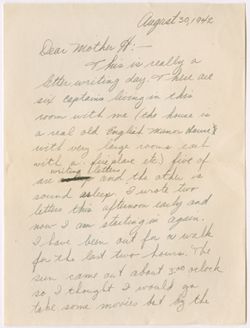 August 30, 1942
Dear Mother H:-
This is really a
letter writing day. There are
six captains living in this
room with me (the house is
a real old English Manor House
with very large rooms each
with a fireplace etc) five of
writing letters
are and the other is
sound asleep. I wrote two
letters this afternoon early and
now I am starting in again.
I have been out for a walk
for the last two hours. The
sun came out about 3:00 o'clock
so I thought I would go
take some movies but by the